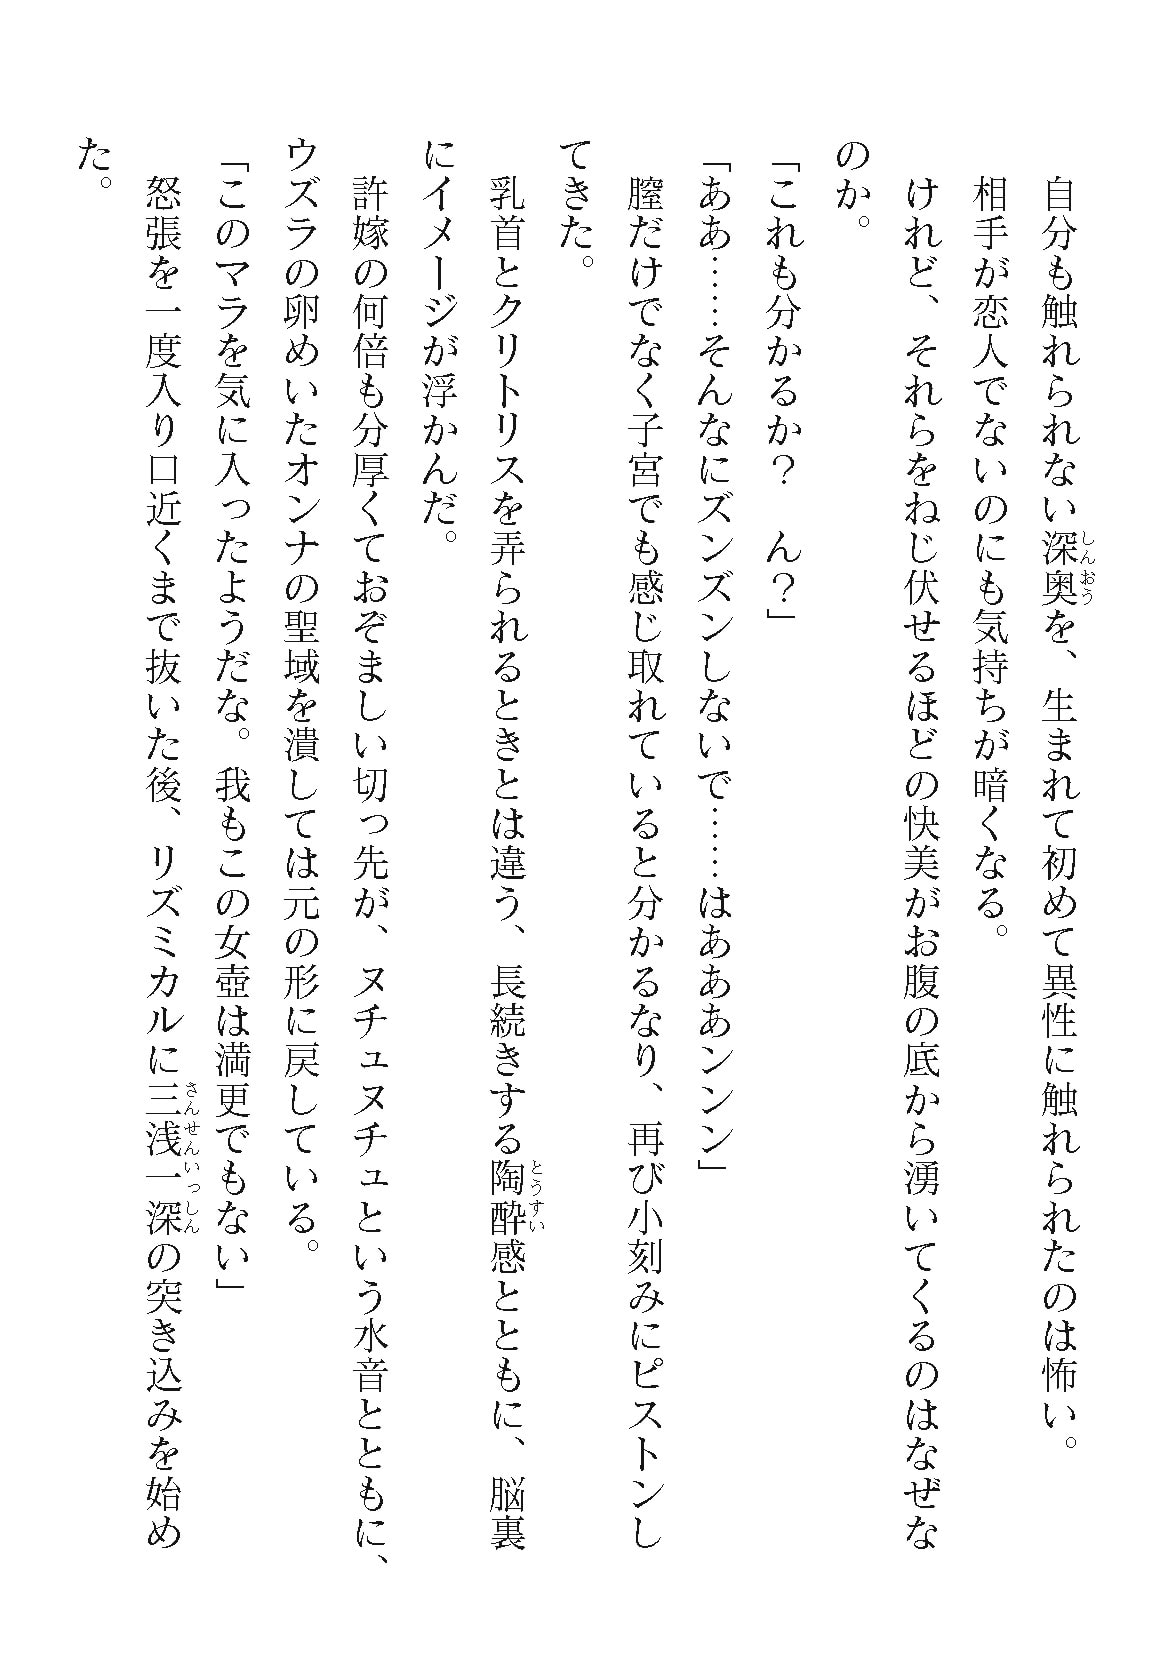 自分も触れられない深奥を、生まれて初めて異性に触れられたのは怖い。
相手が恋人でないのにも気持ちが暗くなる。
けれど、それらをねじ伏せるほどの快美がお腹の底から湧いてくるのはなぜな
のか。
「これも分かるか？　ん？」
「ああ……そんなにズンズンしないで……はあああンンン」
膣だけでなく子宮でも感じ取れていると分かるなり、再び小刻みにピストンし
てきた。
乳首とクリトリスを弄られるときとは違う、長続きする陶酔感とともに、脳裏
にイメージが浮かんだ。
許嫁の何倍も分厚くておぞましい切っ先が、ヌチュヌチュという水音とともに、
ウズラの卵めいたオンナの聖域を潰しては元の形に戻している。
「このマラを気に入ったようだな。我もこの女壺は満更でもない」
怒張を一度入り口近くまで抜いた後、リズミカルに三浅一深の突き込みを始め
た。
しんおう
とうすい
さんせんいっしん